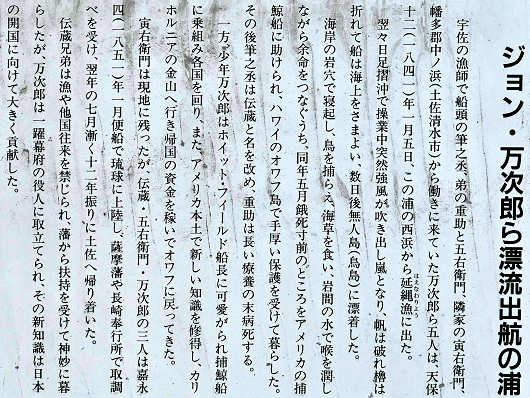 ジョン・万次郎ら漂流出航の浦
宇佐の漁師で船頭の筆之丞、弟の重助と五右衛門、隣家の寅右衛門、
幡多郡中ノ浜（土佐清水市）から働きに来ていた万次郎ら五人は、天保
十二（一八四一）年一月五日、この浦の西浜から延縄漁に出た。
はえなわりょう
翌々日足摺沖で操業中突然強風が吹き出し風となり、帆は破れ櫓は
折れて船は海上をさまよい、数日後無人島（鳥島）に漂着した。
海岸の岩穴で寝起し、鳥を捕らえ、海草を食い、岩間の水で喉を潤し
ながら余命をつなぐうち、同年五月餓死寸前のところをアメリカの捕
鯨船に助けられ、ハワイのオワフ島で手厚い保護を受けて暮らした。
その後筆之丞は伝蔵と名を改め、重助は長い療養の末病死する。
一方、少年万次郎はホイット・フィールド船長に可愛がられ捕鯨船
に乗組み各国を回り、また、アメリカ本土で新しい知識を修得し、カリ
ホルニアの金山へ行き帰国の資金を稼いでオワフに戻ってきた。
寅右衛門は現地に残ったが、伝蔵・五右衛門・万次郎の三人は嘉永
四（一八五一）年一月便船で琉球に上陸し、薩摩藩や長崎奉行所で取調
べを受け、翌年の七月漸く十二年振りに土佐へ帰り着いた。
伝蔵兄弟は漁や他国往来を禁じられ、藩から扶持を受けて神妙に暮
らしたが、万次郎は一躍幕府の役人に取立てられ、その新知識は日本
の開国に向けて大きく貢献した。